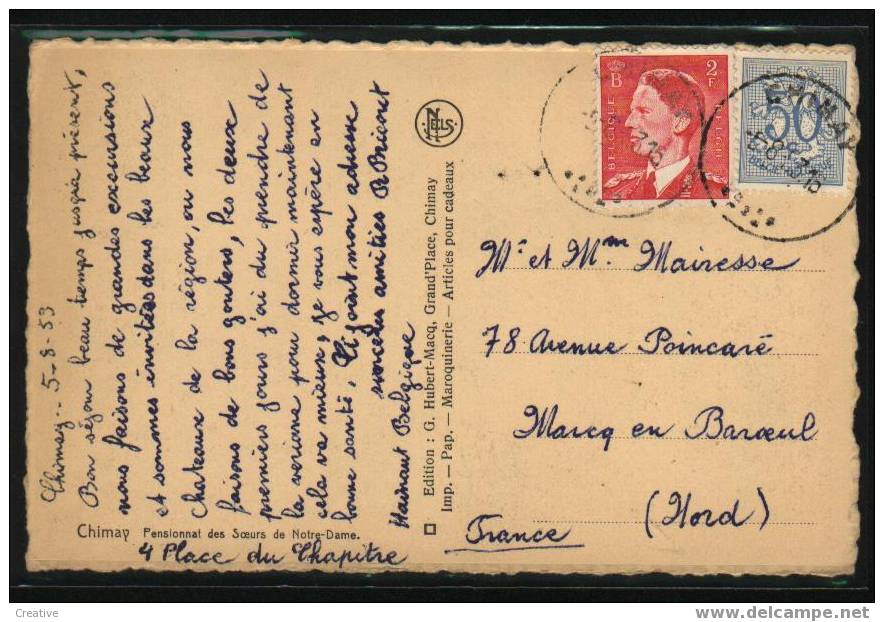 Chimay.. 5-8-53
Bon séjour beau temps jusqu'a présent,
nous faisons de grandes excursions
et sommes invitées dans les beaux
chateaux de la région, ou nous
faisons de bons gouters, les deux
premiers jours j'ai du prendre de
la veriane pour dormir maintenant
cela va mieux, je vous espère en
bonne santé. Ci joint mon adresse
sincères amitiés
Hainaut Belgique
Chimay Pensionnat des Sœurs de Notre-Dame.
4 Place du Chapitre
Edition : G. Hubert-Macq, Grand'Place, Chimay
Imp. — Pap. — Maroquinerie — Articles pour cadeaux
NELS
B 2F
BELGIQUE BELGIE
50
CHIMAY
Mr et Mme Mairesse
78 Avenue Poincaré
Marcq en Barœul
(Nord)
France
Creative
www.delcampe.net